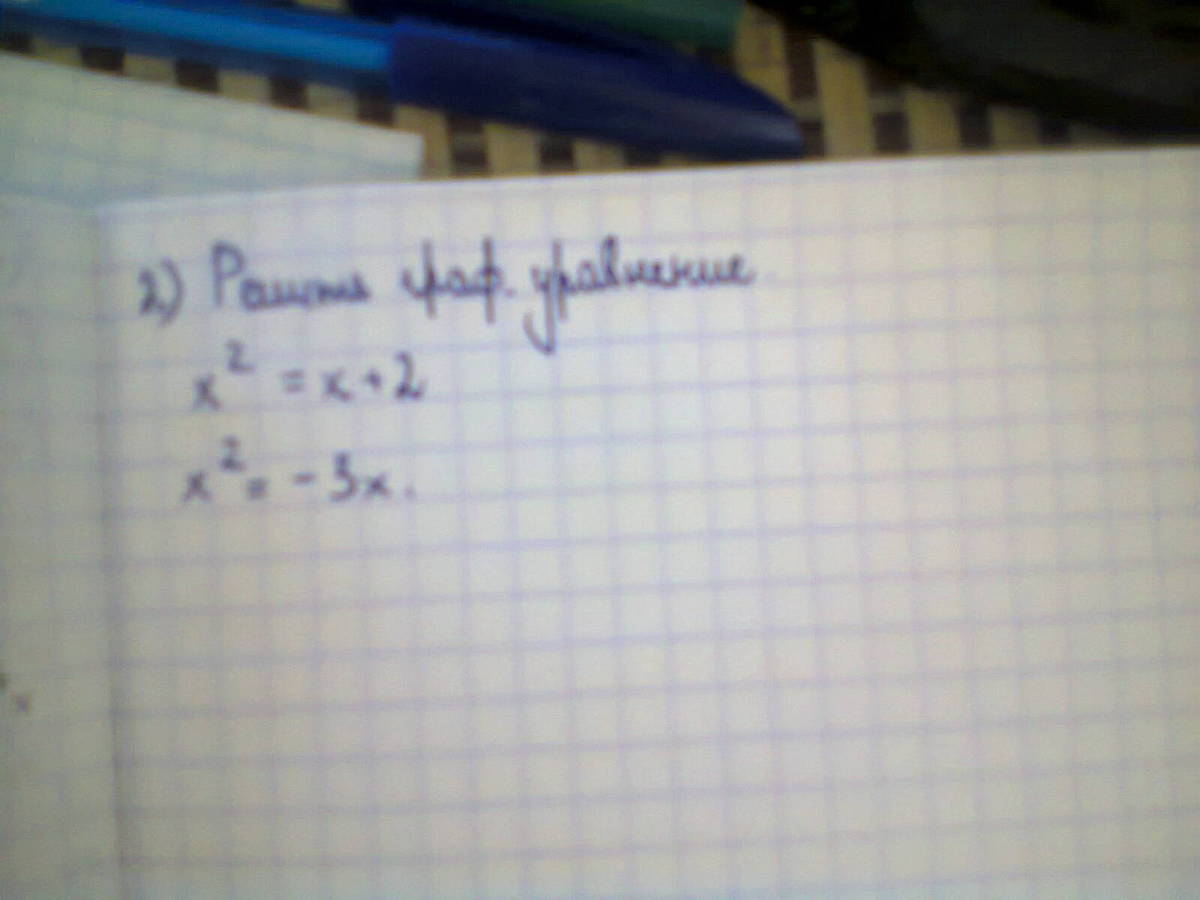 2) Решить граф. уравнение
x² = x + 2
x² = - 3x.
x